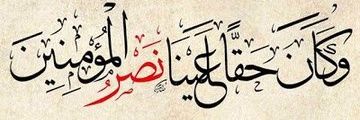 وَكَانَ حَقًّا عَلَيْنَا نَصْرُ الْمُؤْمِنِينَ